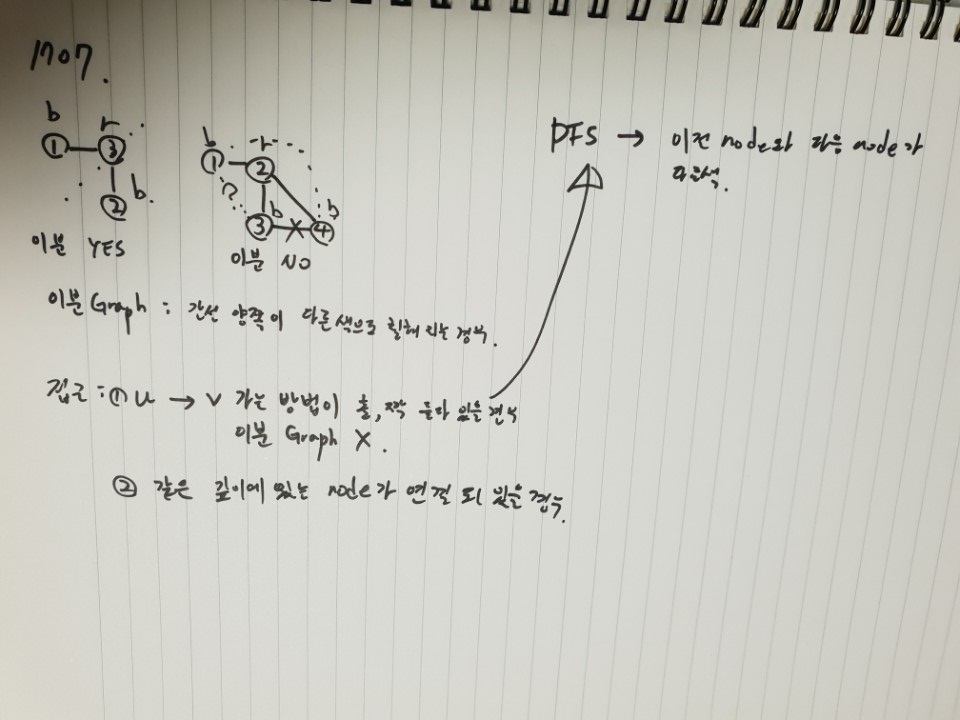 1707.
b
r
① ③
b.
②
이분 YES
b
r
① ②
b
b
③ X ④
이분 NO
DFS → 이전 node와 다음 node가
다른색.
이분 Graph : 간선 양쪽이 다른색으로 칠해지는 경우.
접근 : ① u → v 가는 방법이 홀, 짝 둘다 있을 경우
이분 Graph X.
② 같은 깊이에 있는 node가 연결 되 있을 경우.